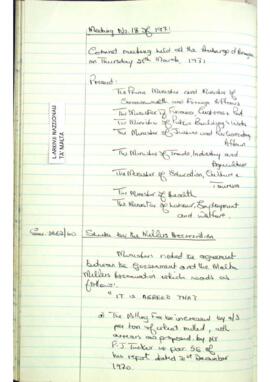 Meeting No. 18 of 1971
Cabinet meeting held at the Auberge d'
on Thursday 25th March, 1971
Present:
The Prime Minister and Minister of
Commonwealth and Foreign Affairs
The Minister of Finance, Customs & Port
The Minister of Public Building & Works
The Minister of Justice and Parliamentary
Affairs
The Minister of Trade, Industry and
Agriculture
The Minister of Education, Culture &
Tourism
The Minister of Health
The Minister of Labour, Employment
and Welfare
L-ARKIVJI NAZZJONALI
TA' MALTA
by the Millers Association
Ministers noted the agreement
between the Government and the Malta
Millers Association which reads as
follows:
"IT IS AGREED THAT
a) The Milling Fee be increased by
per ton of wheat milled, with
arrears as proposed by Mr
P.J. Tucker in para. 56 of
his report dated December
1970.